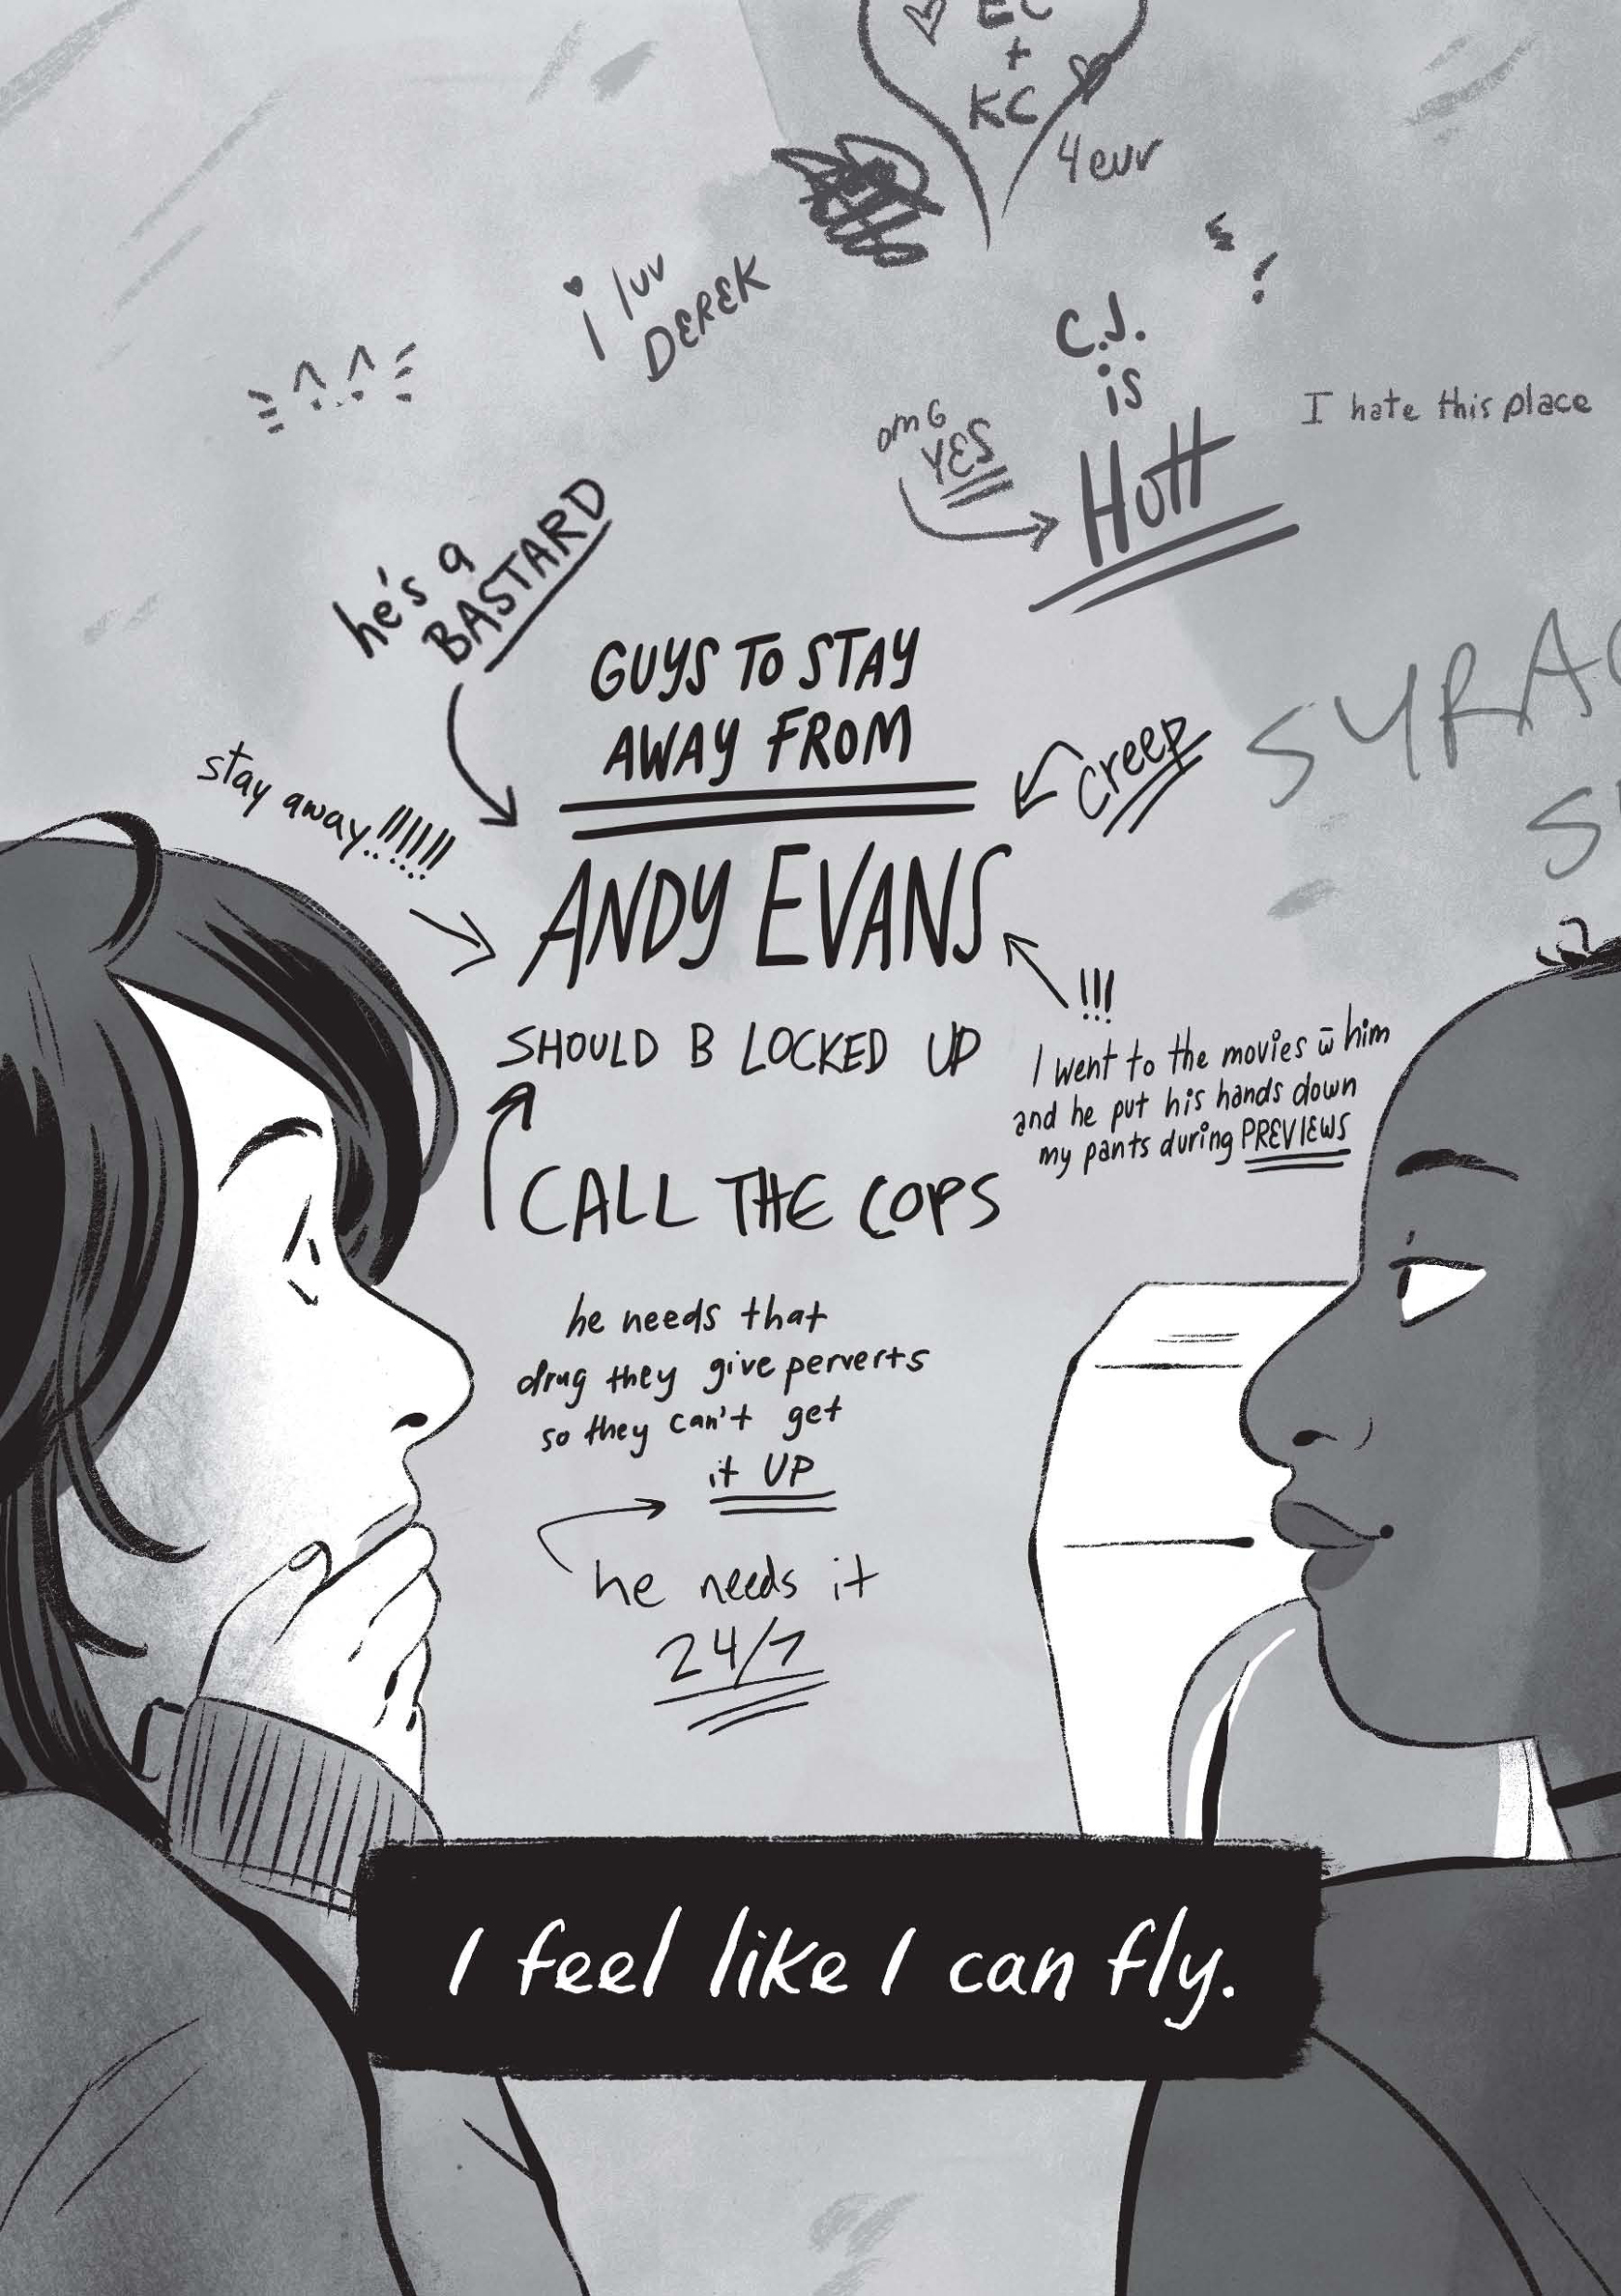 EC
+
KC
4 evr
i luv
DEREK
C.J.
is
HOTT
omG
YES
I hate this place
he's a
BASTARD
GUYS TO STAY
AWAY FROM
stay away..!!!!!!
creep
ANDY EVANS
SHOULD B LOCKED UP
!!!
I went to the movies w̄ him
and he put his hands down
my pants during PREVIEWS
CALL THE COPS
he needs that
drug they give perverts
so they can't get
it UP
he needs it
24/7
I feel like I can fly.